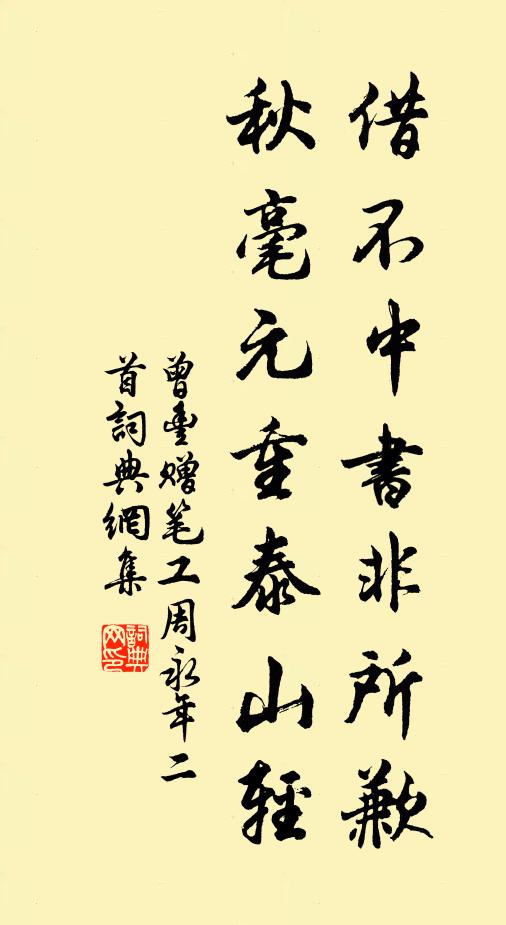 借不中書非所歉
秋毫元重泰山輕
曾豐贈笔工周永年二
首詞典網集
詞典網印